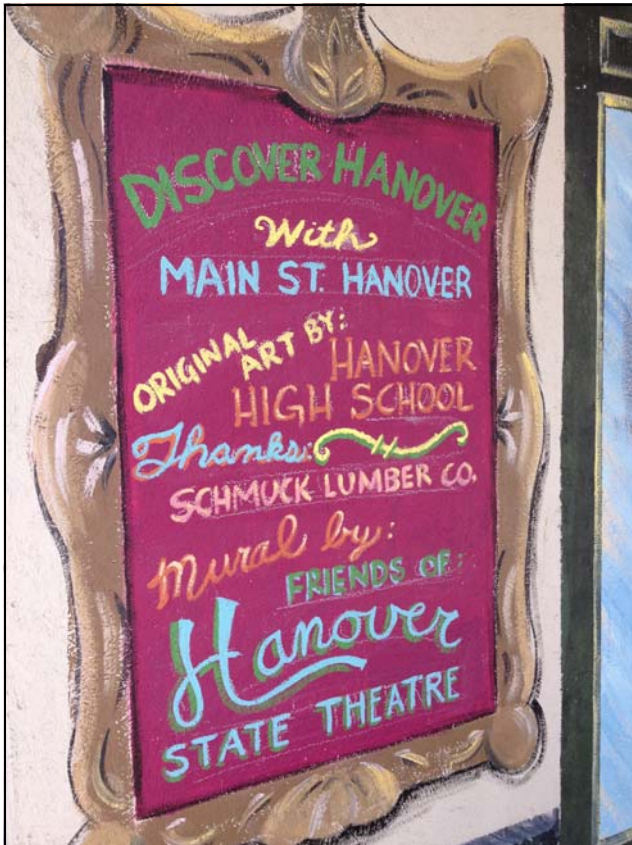 DISCOVER HANOVER
With
MAIN ST. HANOVER
ORIGINAL
ART BY:
HANOVER
HIGH SCHOOL
Thanks:
SCHMUCK LUMBER CO.
Mural by:
FRIENDS OF:
Hanover
STATE THEATRE